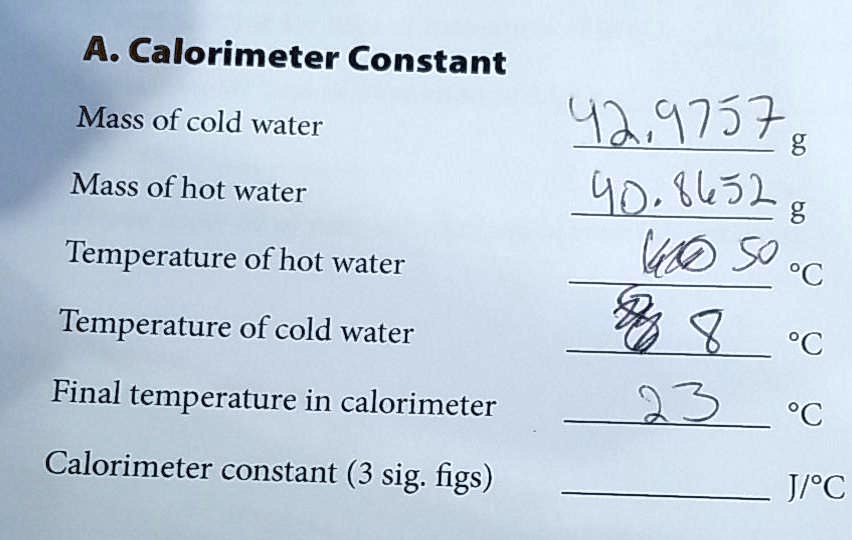 A. Calorimeter Constant
Mass of cold water 42.9757 g
Mass of hot water 40.8652 g
Temperature of hot water 50 °C
Temperature of cold water 8 °C
Final temperature in calorimeter 23 °C
Calorimeter constant (3 sig. figs) J/°C